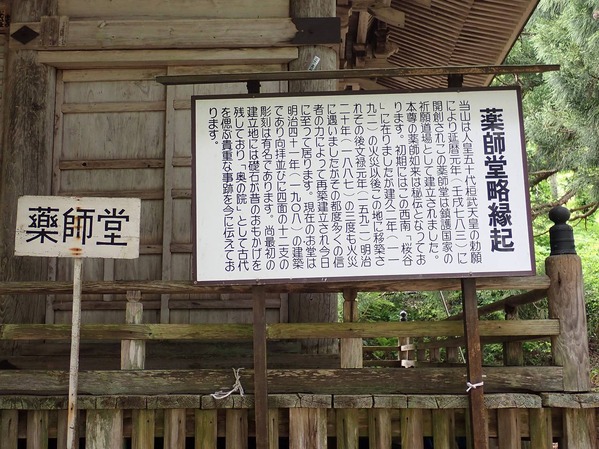 薬師堂略縁起
当山は人皇五十代桓武天皇の勅願
により延暦元年(壬戌七八二)に
開創されこの薬師堂は鎮護国家の
祈願道場として建立されました。
本尊の薬師如来は秘伝となってお
ります。初期にはこの西南「桜谷
」に在りましたが建久三年(一一
九二)の火災以後この地に移築さ
れその後文禄元年(一五九二)明治
二十年(一八八七)の三度も火災
に遇いましたがその都度多くの信
者の力によって再築建立され今日
に至って居ります。現在のお堂は
明治四十一年(一九〇八)の建築
であり向拝並びに四面の十二支の
彫刻は有名であります。尚最初の
建立地には礎石が昔のおもかげを
残しており「奥の院」として古代
を偲ぶ貴重な事跡を今に伝えてお
ります。
薬師堂